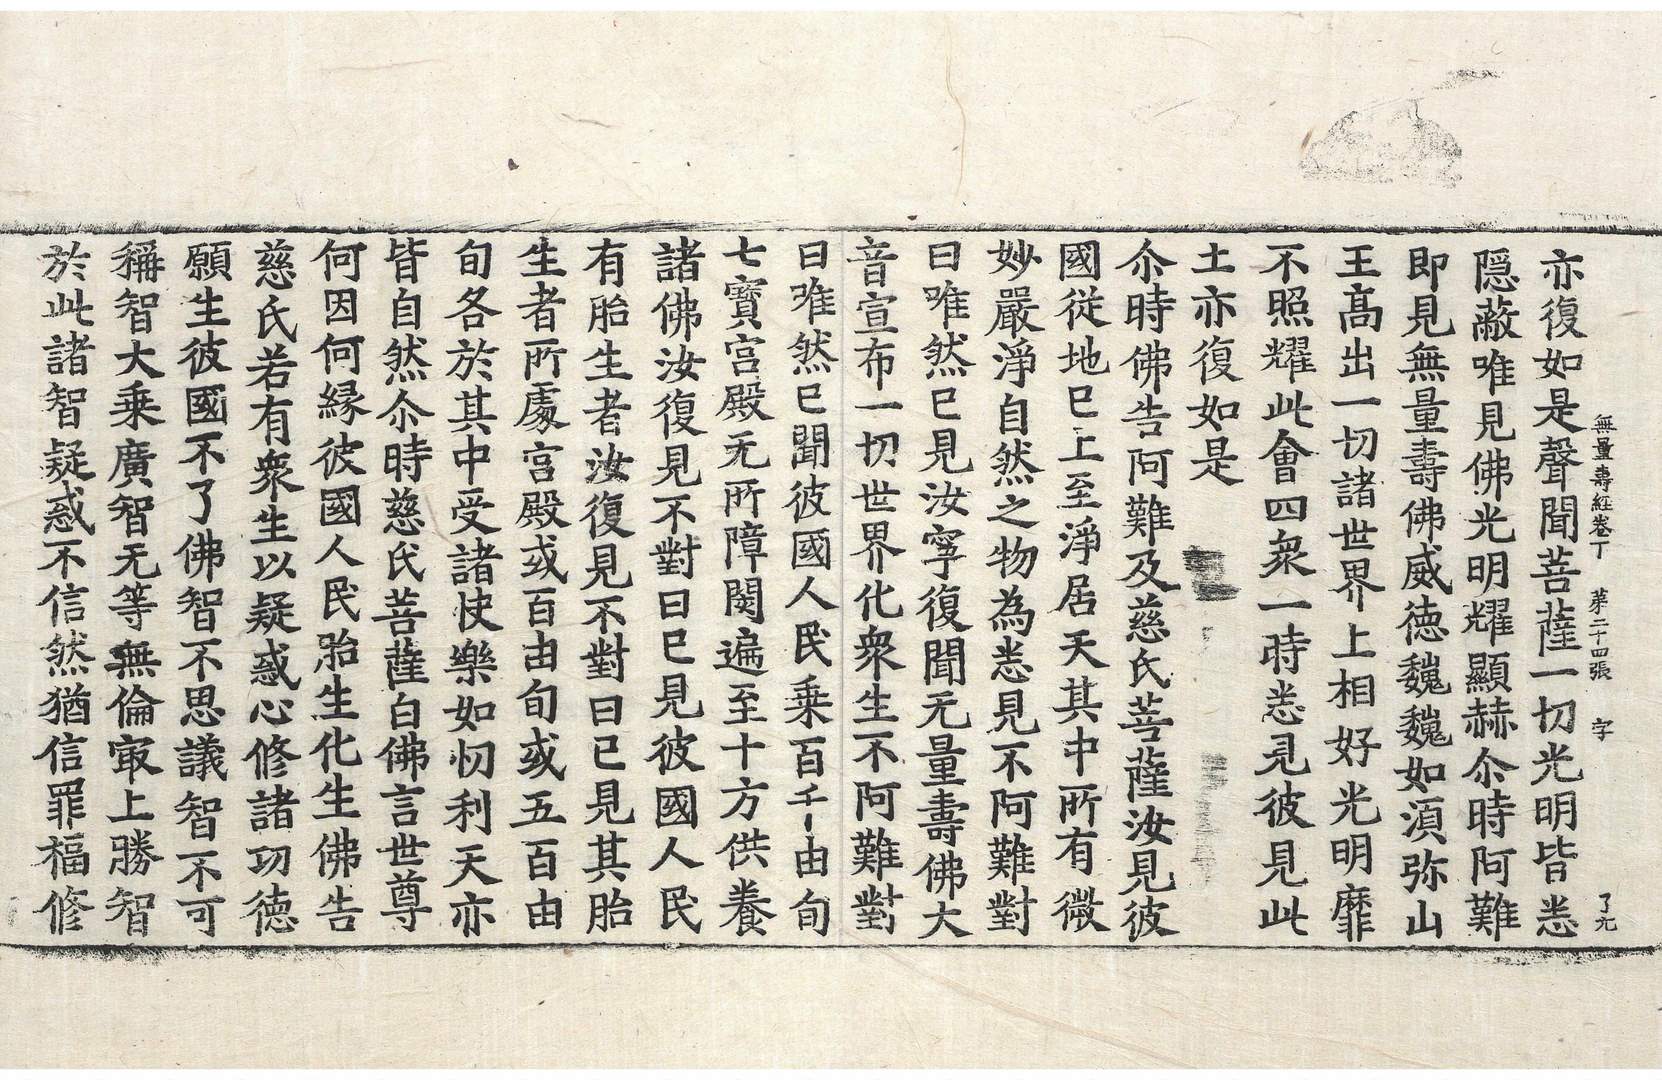 無量壽經卷下 第二十四張 字 了元
亦復如是聲聞菩薩一切光明皆悉
隱蔽唯見佛光明耀顯赫尒時阿難
即見無量壽佛威德巍巍如湏弥山
王高出一切諸世界上相好光明靡
不照耀此會四衆一時悉見彼見此
土亦復如是
尒時佛告阿難及慈氏菩薩汝見彼
國從地已上至淨居天其中所有微
妙嚴淨自然之物為悉見不阿難對
曰唯然已見汝寧復聞无量壽佛大
音宣布一切世界化衆生不阿難對
曰唯然已聞彼國人民乗百千由旬
七寶宫殿无所障閡遍至十方供養
諸佛汝復見不對曰已見彼國人民
有胎生者汝復見不對曰已見其胎
生者所處宫殿或百由旬或五百由
旬各於其中受諸快樂如忉利天亦
皆自然尒時慈氏菩薩白佛言世尊
何因何緣彼國人民胎生化生佛告
慈氏若有衆生以疑惑心修諸功德
願生彼國不了佛智不思議智不可
稱智大乗廣智无等無倫㝡上勝智
於此諸智疑惑不信然猶信罪福修